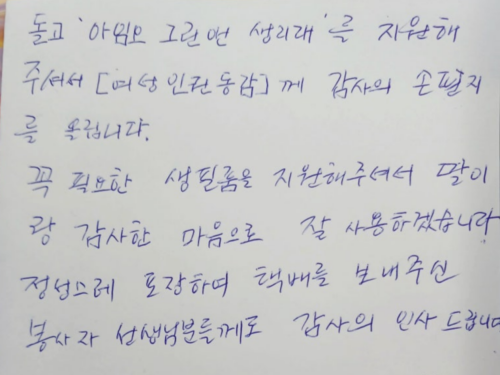 돕고 '아임오 그린먼 생리대'를 지원해
주셔서 [여성인권동감]께 감사의 손편지
를 올립니다.
꼭 필요한 생필품을 지원해주셔서 딸이
랑 감사한 마음으로 잘 사용하겠습니다
정성스레 포장하여 택배를 보내주신
봉사자 선생님분들께도 감사의 인사 드립니다